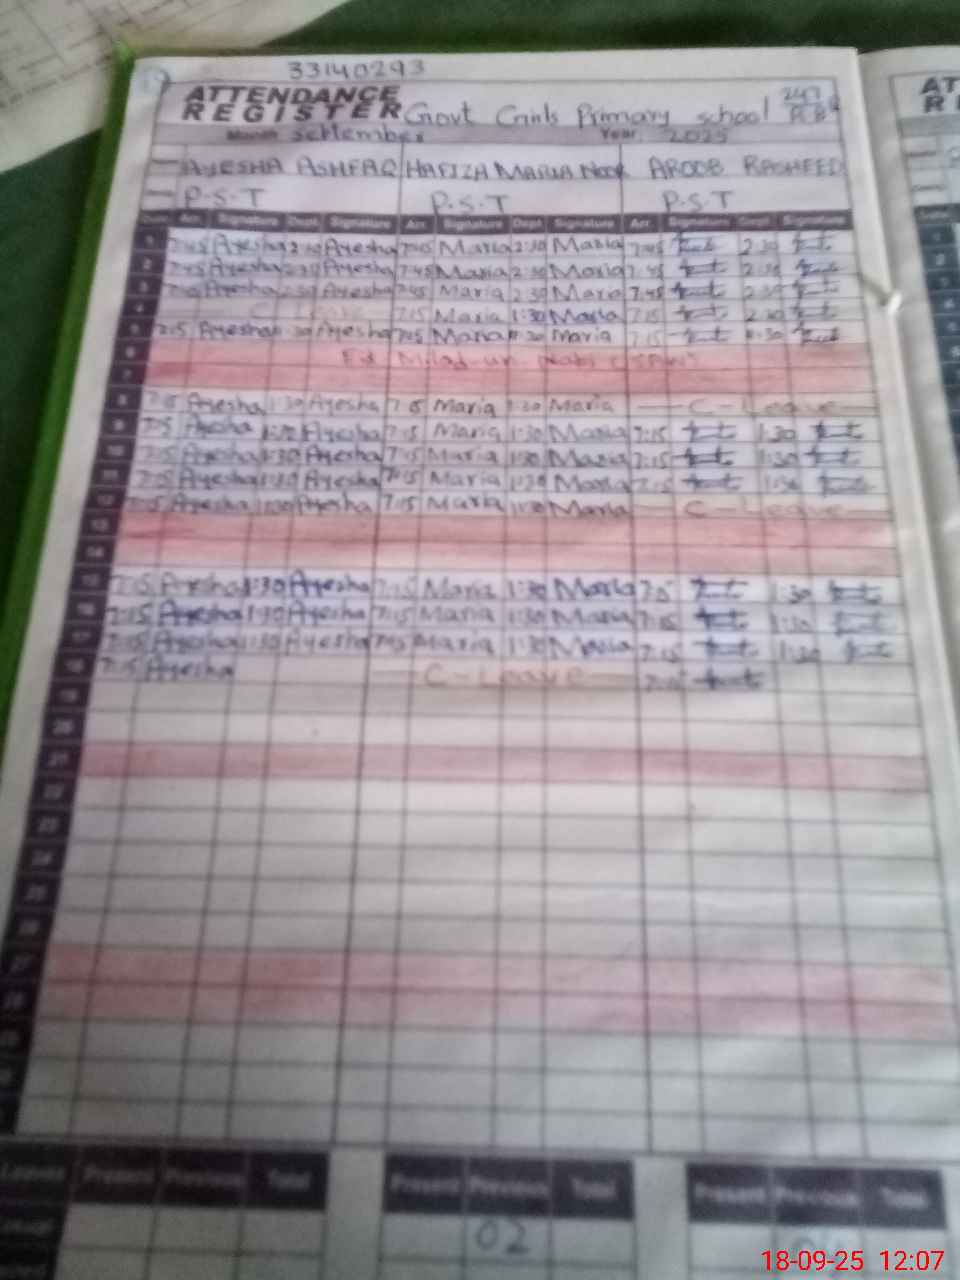 33140293
ATTENDANCE
REGISTER Govt Girls Primary school 247 R.B
Month September Year 2025
AYESHA ASHFAQ HAFIZA MARIA Noor AROOB RASHEED
P.S.T P.S.T P.S.T
Date Arr. Signature Dept. Signature Arr. Signature Dept. Signature Arr. Signature Dept. Signature
1 7:45 Ayesha 2:30 Ayesha 7:45 Maria 2:30 Maria 7:45 2:30
2 7:45 Ayesha 2:30 Ayesha 7:45 Maria 2:30 Maria 7:45 2:30
3 7:45 Ayesha 2:30 Ayesha 7:45 Maria 2:30 Maria 7:45 2:30
4 C-Leave 7:15 Maria 1:30 Maria 7:15 2:30
5 7:15 Ayesha 11:30 Ayesha 7:15 Maria 11:30 Maria 7:15 11:30
6 Eid Milad-un-Nabi
7
8 7:15 Ayesha 1:30 Ayesha 7:15 Maria 1:30 Maria C-Leave
9 7:15 Ayesha 1:30 Ayesha 7:15 Maria 1:30 Maria 7:15 1:30
10 7:15 Ayesha 1:30 Ayesha 7:15 Maria 1:30 Maria 7:15 1:30
11 7:15 Ayesha 1:30 Ayesha 7:15 Maria 1:30 Maria 7:15 1:30
12 7:15 Ayesha Ayesha 7:15 Maria Maria C-Leave
13
14
15 7:15 Ayesha 1:30 Ayesha 7:15 Maria 1:30 Maria 7:15 1:30
16 7:15 Ayesha 1:30 Ayesha 7:15 Maria 1:30 Maria 7:15 1:30
17 7:15 Ayesha 1:30 Ayesha 7:15 Maria 1:30 Maria 7:15 1:30
18 7:15 Ayesha C-Leave 7:15
19
20
21
22
23
24
25
26
27
28
29
Leaves Present Previous Total Present Previous Total Present Previous Total
Casual 02
18-09-25 12:07